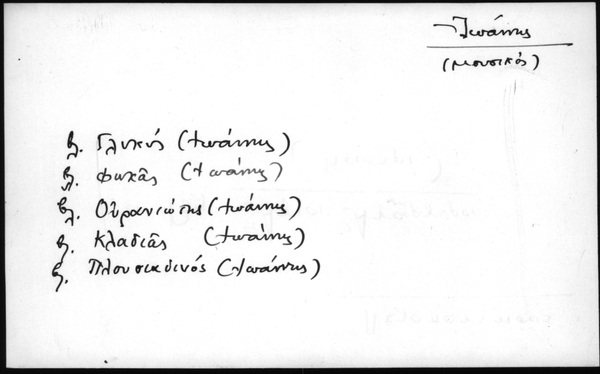 Ἰωάννης
(μουσικός)
βλ. Γλυκύς (Ἰωάννης)
βλ. Φωκᾶς (Ἰωάννης)
βλ. Οὐρανιώτης (Ἰωάννης)
βλ. Κλαδᾶς (Ἰωάννης)
βλ. Πλουσιαδινός (Ἰωάννης)